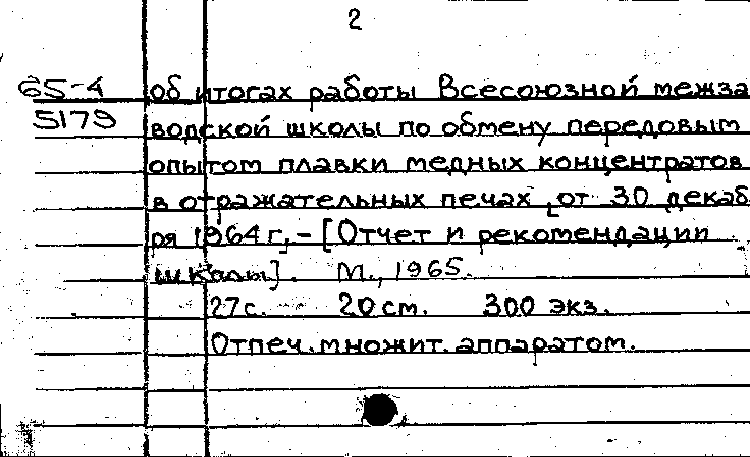 2
65-4
5179
об итогах работы Всесоюзной межза
водской школы по обмену передовым
опытом плавки медных концентратов
в отражательных печах [от 30 декаб
ря 1964 г.] - [Отчет и рекомендации
школы]. М., 1965.
27 с. 20 ст. 300 экз.
Отпеч. множит. аппаратом.